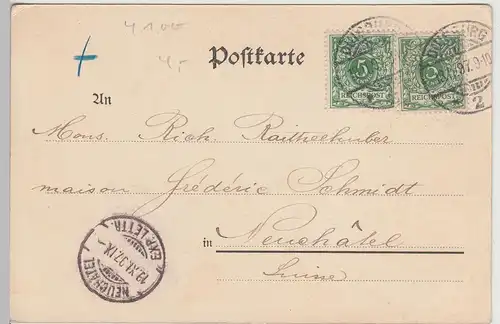 4 1,00
4,-
Postkarte
5
REICHSPOST
REICHSPOST
97. 9-10
2
An
Mons. Rich. Raithelhuber
maison Frédéric Schmidt
in Neuchâtel
Suisse
NEUCHATEL
12.XI.97.IX
EXP. LETTR.